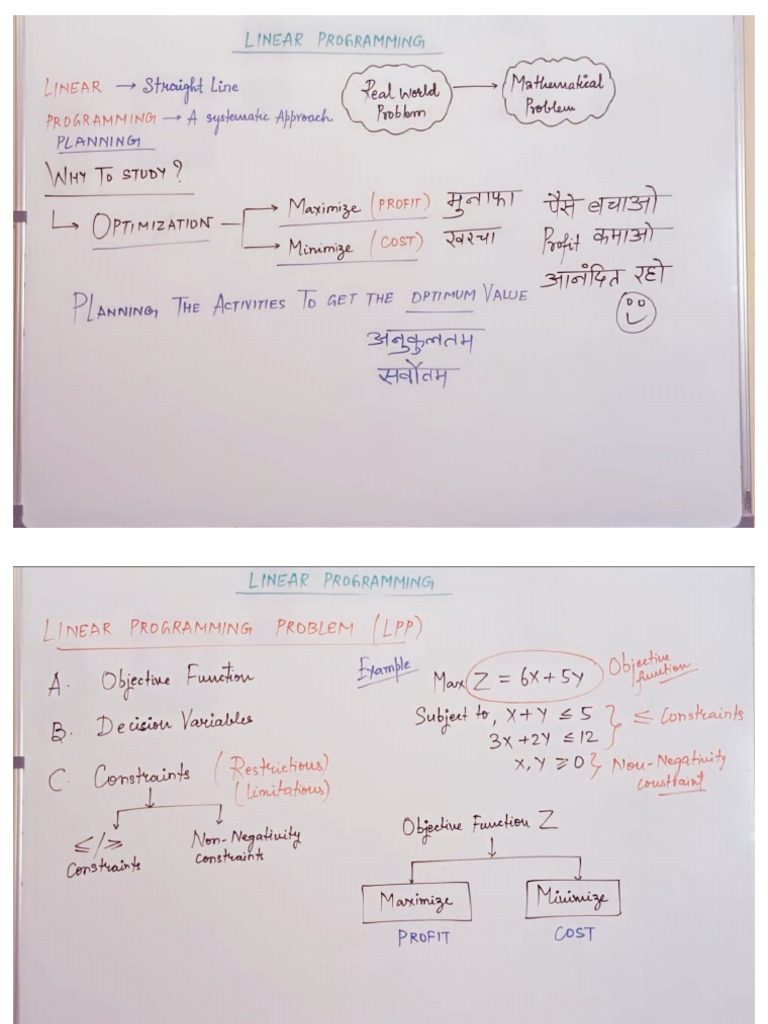 LINEAR PROGRAMMING
LINEAR → Straight Line
Real World Problem → Mathematical Problem
PROGRAMMING → A systematic Approach
PLANNING
WHY TO STUDY?
OPTIMIZATION
Maximize (PROFIT) मुनाफा
Minimize (COST) खरचा
पैसे बचाओ
Profit कमाओ
आनंदित रहो
PLANNING THE ACTIVITIES TO GET THE OPTIMUM VALUE
अनुकुलतम
सर्वोतम
LINEAR PROGRAMMING
LINEAR PROGRAMMING PROBLEM (LPP)
A. Objective Function
B. Decision Variables
C. Constraints (Restrictions)
(Limitations)
≤/≥
Constraints
Non-Negativity
constraints
Example
Max Z = 6X + 5Y Objective function
Subject to, X + Y ≤ 5
3X + 2Y ≤ 12
≤ Constraints
X, Y ≥ 0 Non-Negativity
constraint
Objective Function Z
Maximize
Minimize
PROFIT
COST